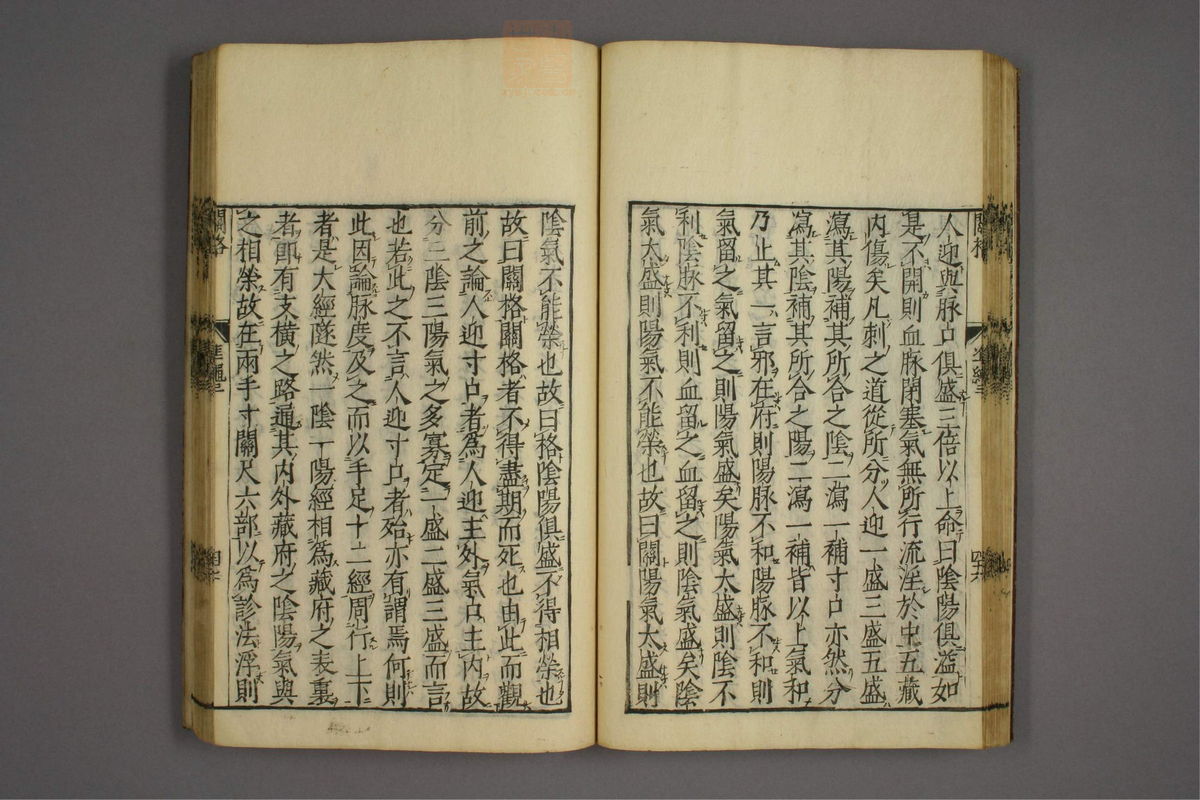 人迎與脉口俱盛三倍以上命曰陰陽俱溢如
是不開則血脉閉塞氣無所行流淫於中五藏
内傷矣凡刺之道從所分人迎一盛三盛五盛
瀉其陽補其所合之陰二瀉一補寸口亦然分
瀉其陰補其所合之陽二瀉一補皆以上氣和
乃止其一言邪在府則陽脉不和陽脉不和則
氣留之氣留之則陽氣盛矣陽氣太盛則陰不
利陰脉不利則血留之血留之則陰氣盛矣陰
氣太盛則陽氣不能榮也故曰關陽氣太盛則
陰氣不能榮也故曰格陰陽俱盛不得相榮也
故曰關格關格者不得盡期而死也由此而觀
前之論人迎寸口者為人迎主外氣口主内故
分三陰三陽氣之多寡定一盛二盛三盛而言
也若此之不言人迎寸口者殆亦有謂焉何則
此因論脉度及之而以手足十二經周行上下
者是大經隧然一陰一陽經相為藏府之表裏
者即有支横之路通其内外藏府之陰陽氣與
之相榮故在兩手寸關尺六部以為診法浮則
關格